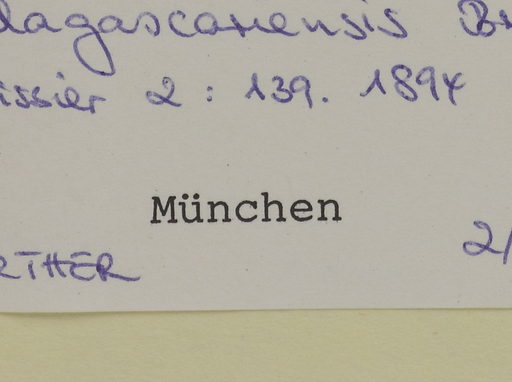 dagascariensis B
issier 2 : 139. 1894
München
RTHER 2/